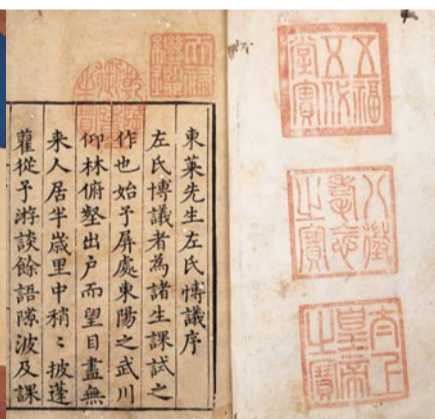 五福五代堂寶
八徵耄念之寶
太上皇帝之寶
天祿繼鑑
乾隆御覽之寶
東萊先生左氏愽議序
左氏愽議者為諸生課試之
作也始予屏處東陽之武川
仰林俯壑出戶而望目盡無
来人居半歲里中稍〻披蓬
藋從予游談餘語隙波及課